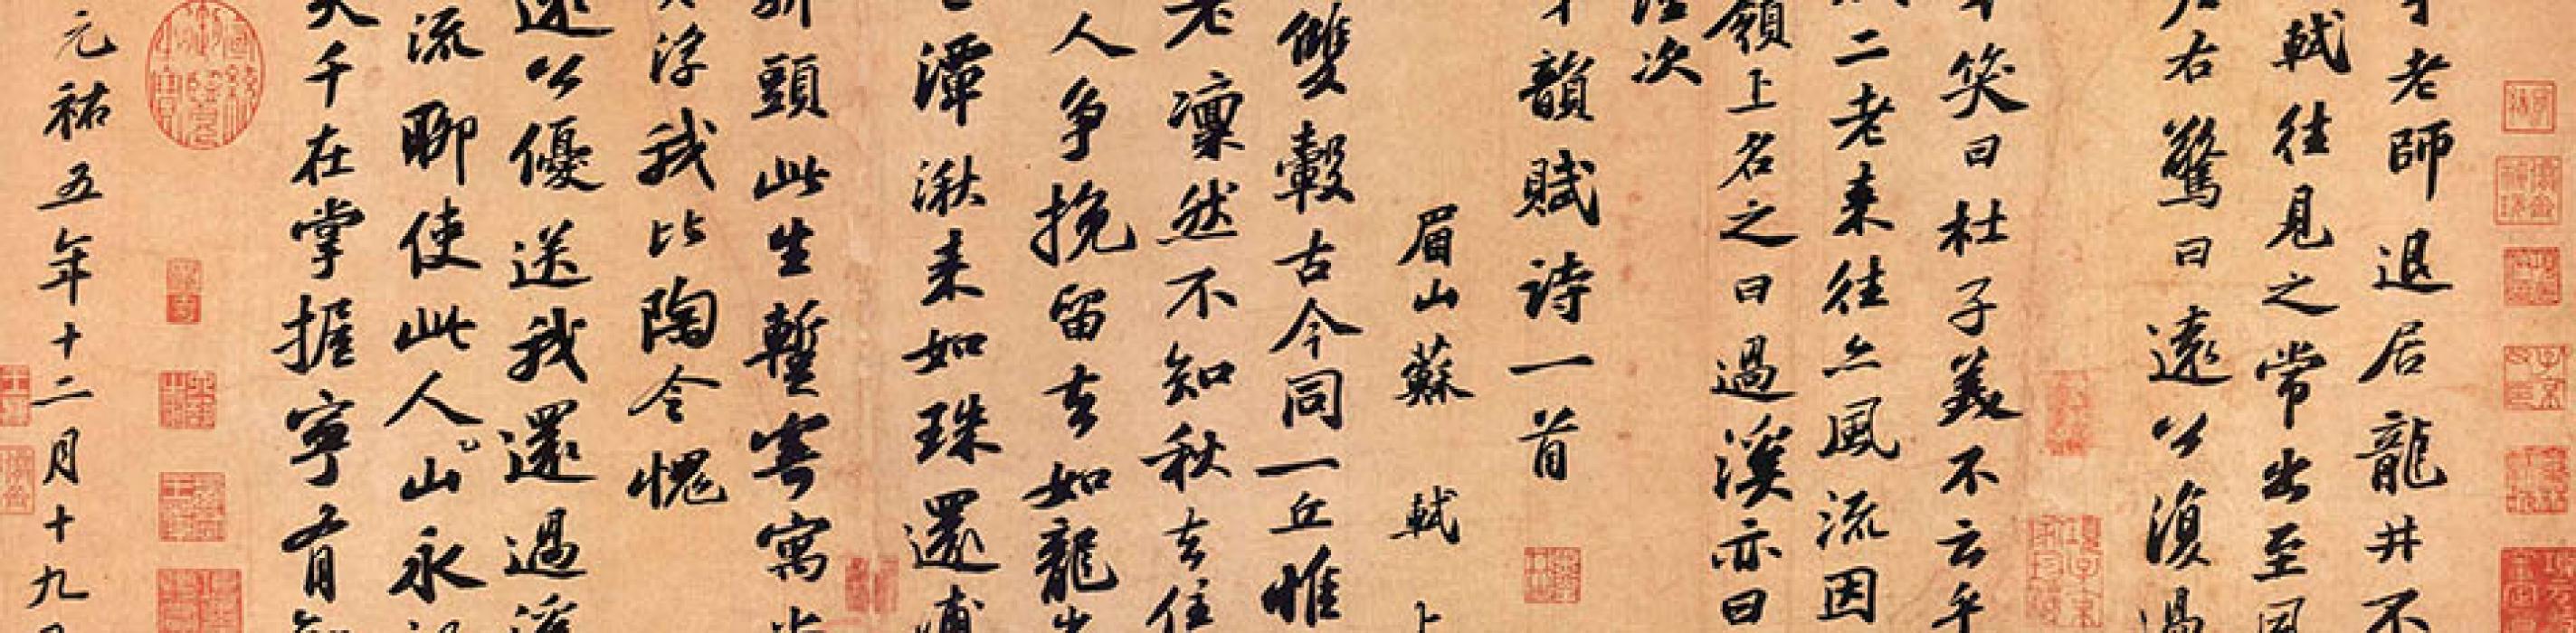 才老師退居龍井不
軾往見之常出至風
左右驚曰遠公復過
笑曰杜子美不云乎
成二老来往亦風流因
嶺上名之曰過溪亦曰
次
韻賦詩一首
眉山蘇軾上
雙轂古今同一丘惟
老凜然不知秋去住
人争挽留去如龍出
潭湫来如珠還浦
頭此生暫寄寓
浮我比陶令愧
遠公優送我還過溪
流聊使此人山永
大千在掌握寧有
元祐五年十二月十九日